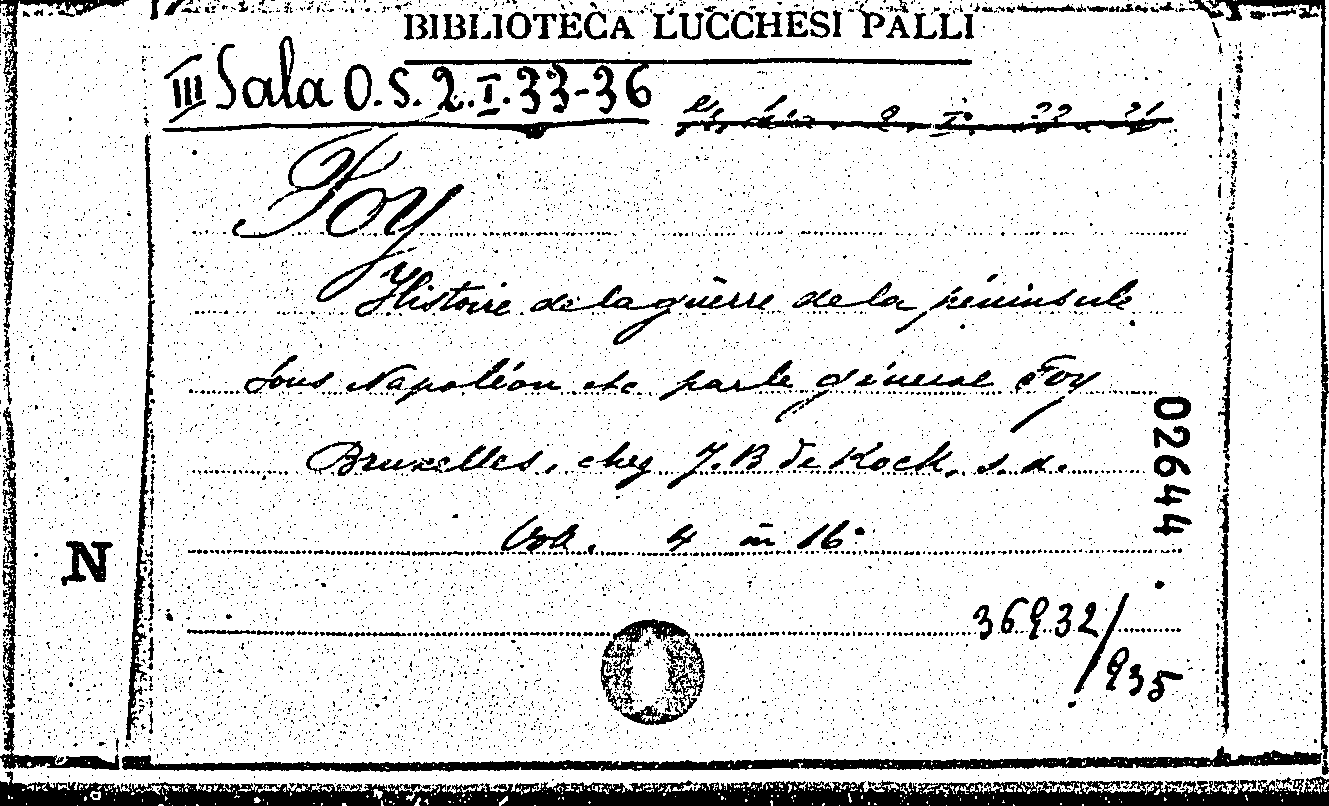 BIBLIOTECA LUCCHESI PALLI
III Sala O.S.2.I.33-36
Foy
Histoire de la guerre de la péninsule
sous Napoléon etc par le général Foy
Bruxelles, chez J.B de Kock, s.d.
02644
Vol. 4 in 16°
N
36932/
935